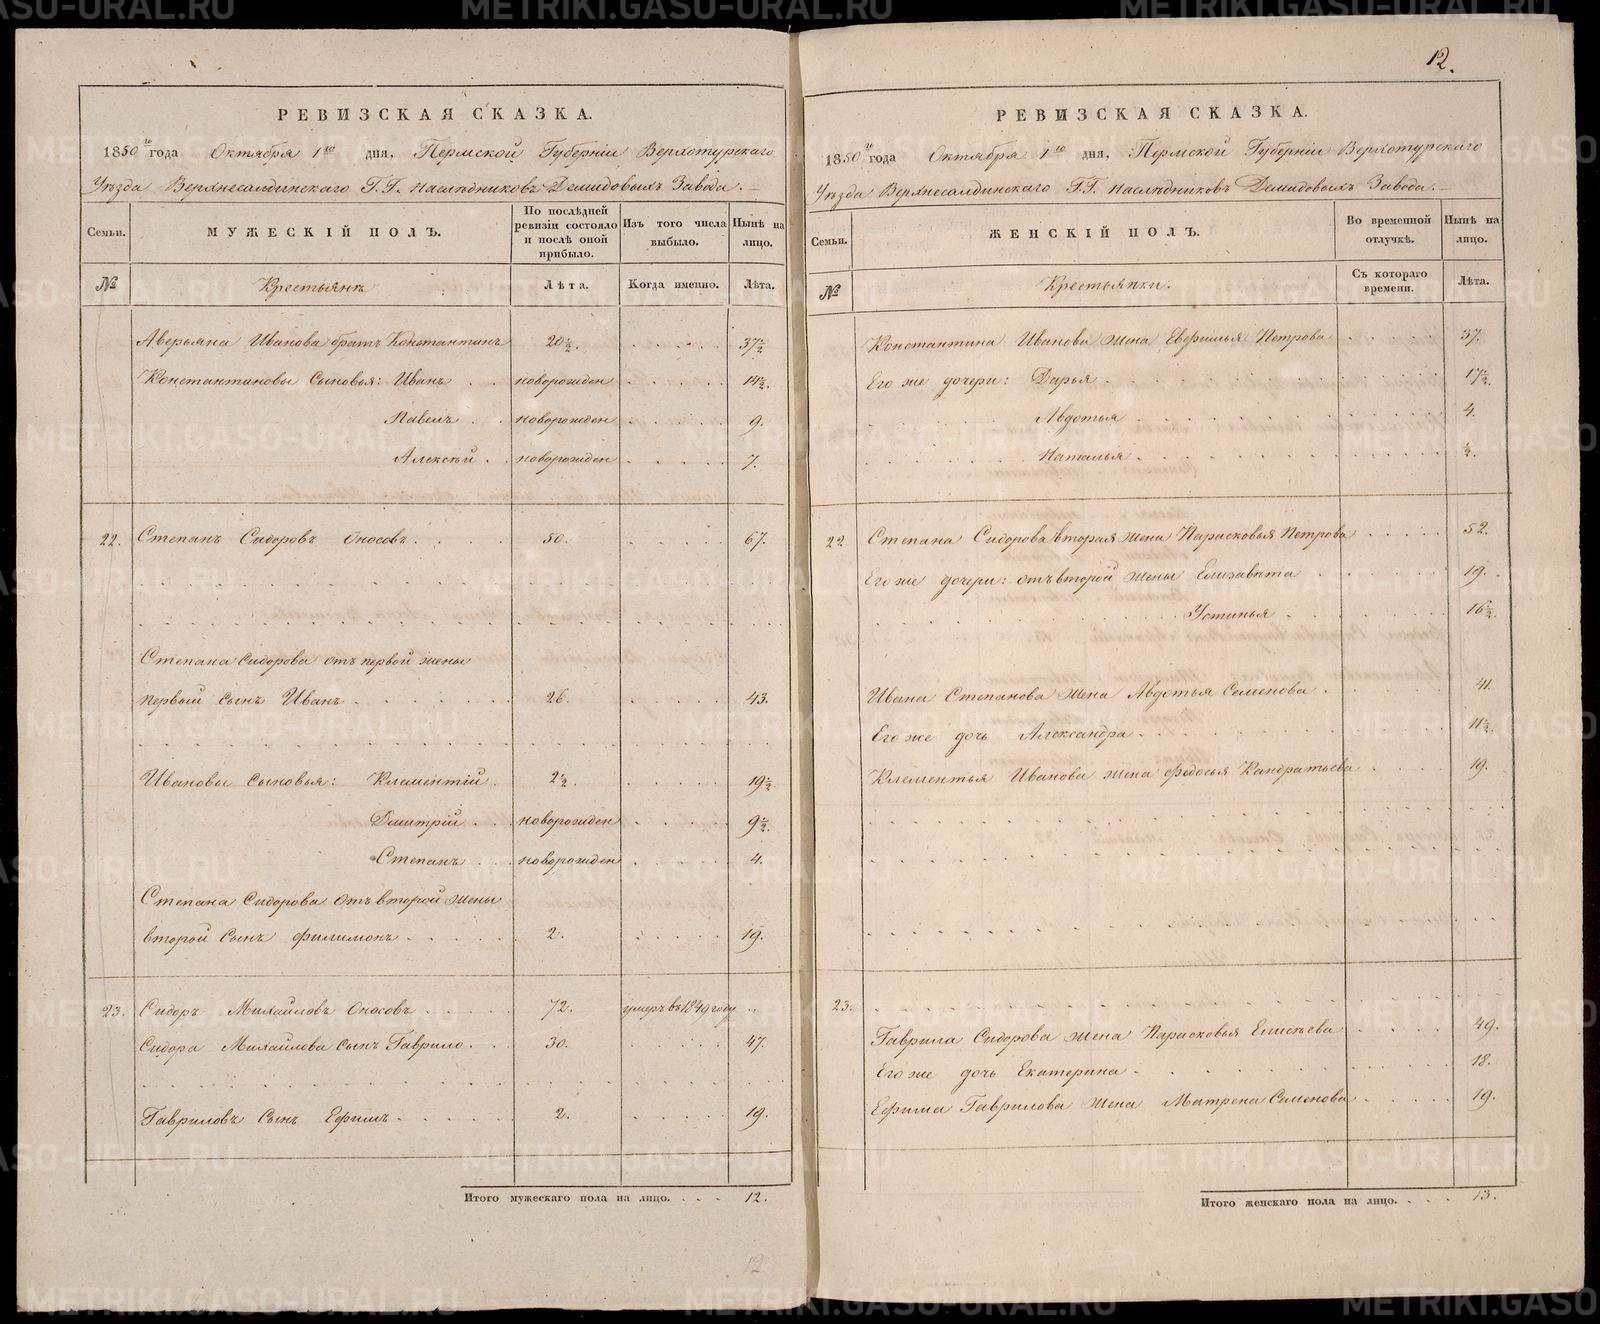 12.
РЕВИЗСКАЯ СКАЗКА.
1850го года Октября 1го дня, Пермской Губернiи Верхотурскаго
Уѣзда Верхнесалдинскаго Г.Г. наслѣдниковъ Демидовыхъ Завода.
Семьи.
МУЖЕСКІЙ ПОЛЪ.
По послѣдней ревизіи состояло и послѣ оной прибыло.
Изъ того числа выбыло.
Нынѣ на лицо.
№
Крестьянъ
Лѣта.
Когда именно.
Лѣта.
Аверьяна Иванова братъ Константинъ 20½. 37½
Константиновы Сыновья: Иванъ новорожден 14½.
Павелъ новорожден 9.
Алексѣй новорожден 7.
22. Степанъ Сидоровъ Оносовъ 50. 67.
Степана Сидорова отъ первой жены
первый сынъ Иванъ 26. 43.
Ивановы Сыновья: Клементій 2½. 19½
Дмитрій новорожден 9½.
Степанъ новорожден 4.
Степана Сидорова отъ второй жены
второй Сынъ Филимонъ 2. 19.
23. Сидоръ Михайловъ Оносовъ 72. умеръ въ 1849 году
Сидора Михайлова Сынъ Гаврило 30. 47.
Гавриловъ Сынъ Ефимъ 2. 19.
Итого мужескаго пола на лицо. 12.
РЕВИЗСКАЯ СКАЗКА.
1850го года Октября 1го дня, Пермской Губернiи Верхотурскаго
Уѣзда Верхнесалдинскаго Г.Г. наслѣдниковъ Демидовыхъ Завода.
Семьи.
ЖЕНСКІЙ ПОЛЪ.
Во временной отлучкѣ.
Нынѣ на лицо.
№
Крестьянки.
Съ котораго времени.
Лѣта.
Константина Иванова жена Евфимья Петрова 37.
Его же дочери: Дарья 17½.
Авдотья 4.
Наталья ½.
22 Степана Сидорова вторая жена Парасковья Петрова 52.
Его же дочери: отъ второй жены Елизавѣта 19.
Устинья 16½.
Ивана Степанова жена Авдотья Семенова 41.
Его же дочь Александра 11½.
Клементья Иванова жена Федосья Кандратьева 19.
23.
Гаврила Сидорова жена Парасковья Елисѣева 49.
Его же дочь Екатерина 18.
Ефима Гаврилова жена Матрена Семенова 19.
Итого женскаго пола на лицо. 13.
12
METRIKI.GASO-URAL.RU